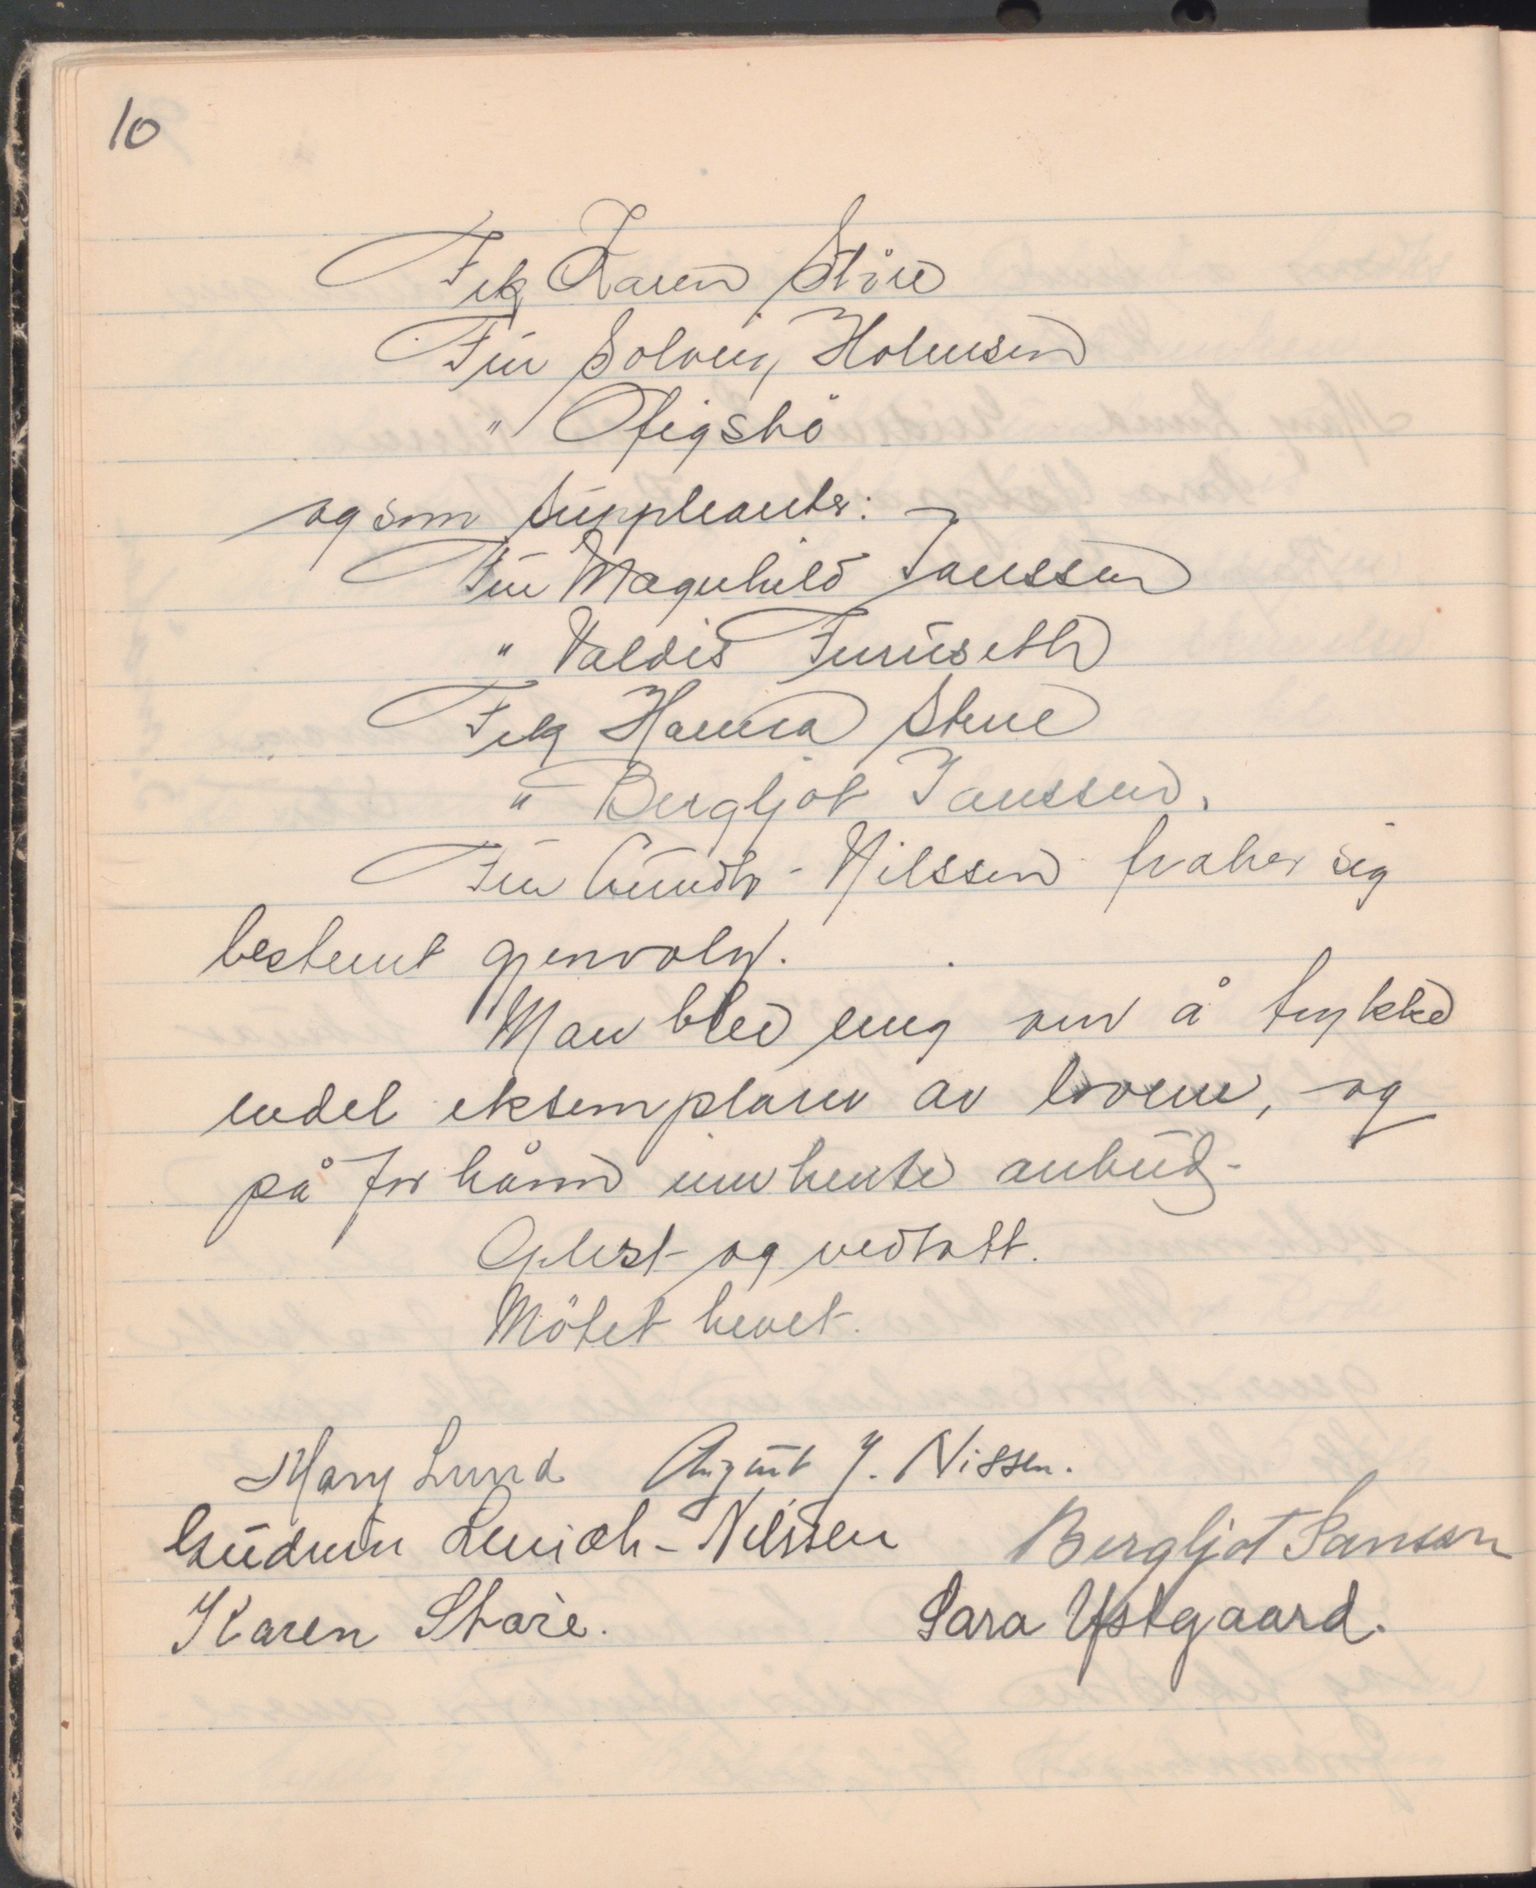 10
Frk Karen Störe
Frü Solveig Holmsen
" Ofigsbö
og som süppleanter:
Frü Magnhild Janssen
" Valdis Furüseth
Frk Hanna Strue
" Bergljot Janssen.
Frü Lündh-Nilssen fraber sig
bestemt gjenvalg.
Man bled enig om å trykke
endel eksemplarer av lovene, og
på forhånd innhente anbüd.
Oplest og vedtatt.
Mötet hevet.
Mary Lund August J. Nissen.
Güdrun - Nilssen Bergljot Janssen
Karen Støre. Sara Ystgaard.